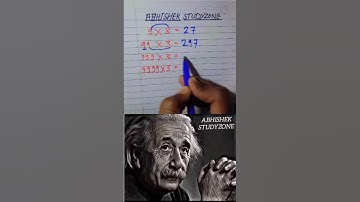 ABHISHEK STUDYZONE
9 × 3 = 27
99 × 3 = 297
999 × 3 =
9999 × 3 =
ABHISHEK
STUDYZONE